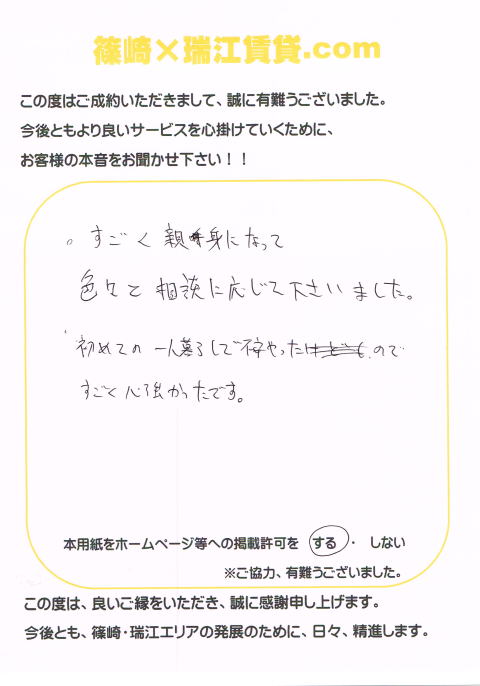 篠崎×瑞江賃貸.com
この度はご成約いただきまして、誠に有難うございました。
今後ともより良いサービスを心掛けていくために、
お客様の本音をお聞かせ下さい！！
。すごく親身になって
色々と相談に応じて下さいました。
初めての一人暮らしで不安やったので
すごく心強かったです。
本用紙をホームページ等への掲載許可を する ・ しない
※ご協力、有難うございました。
この度は、良いご縁をいただき、誠に感謝申し上げます。
今後とも、篠崎・瑞江エリアの発展のために、日々、精進します。